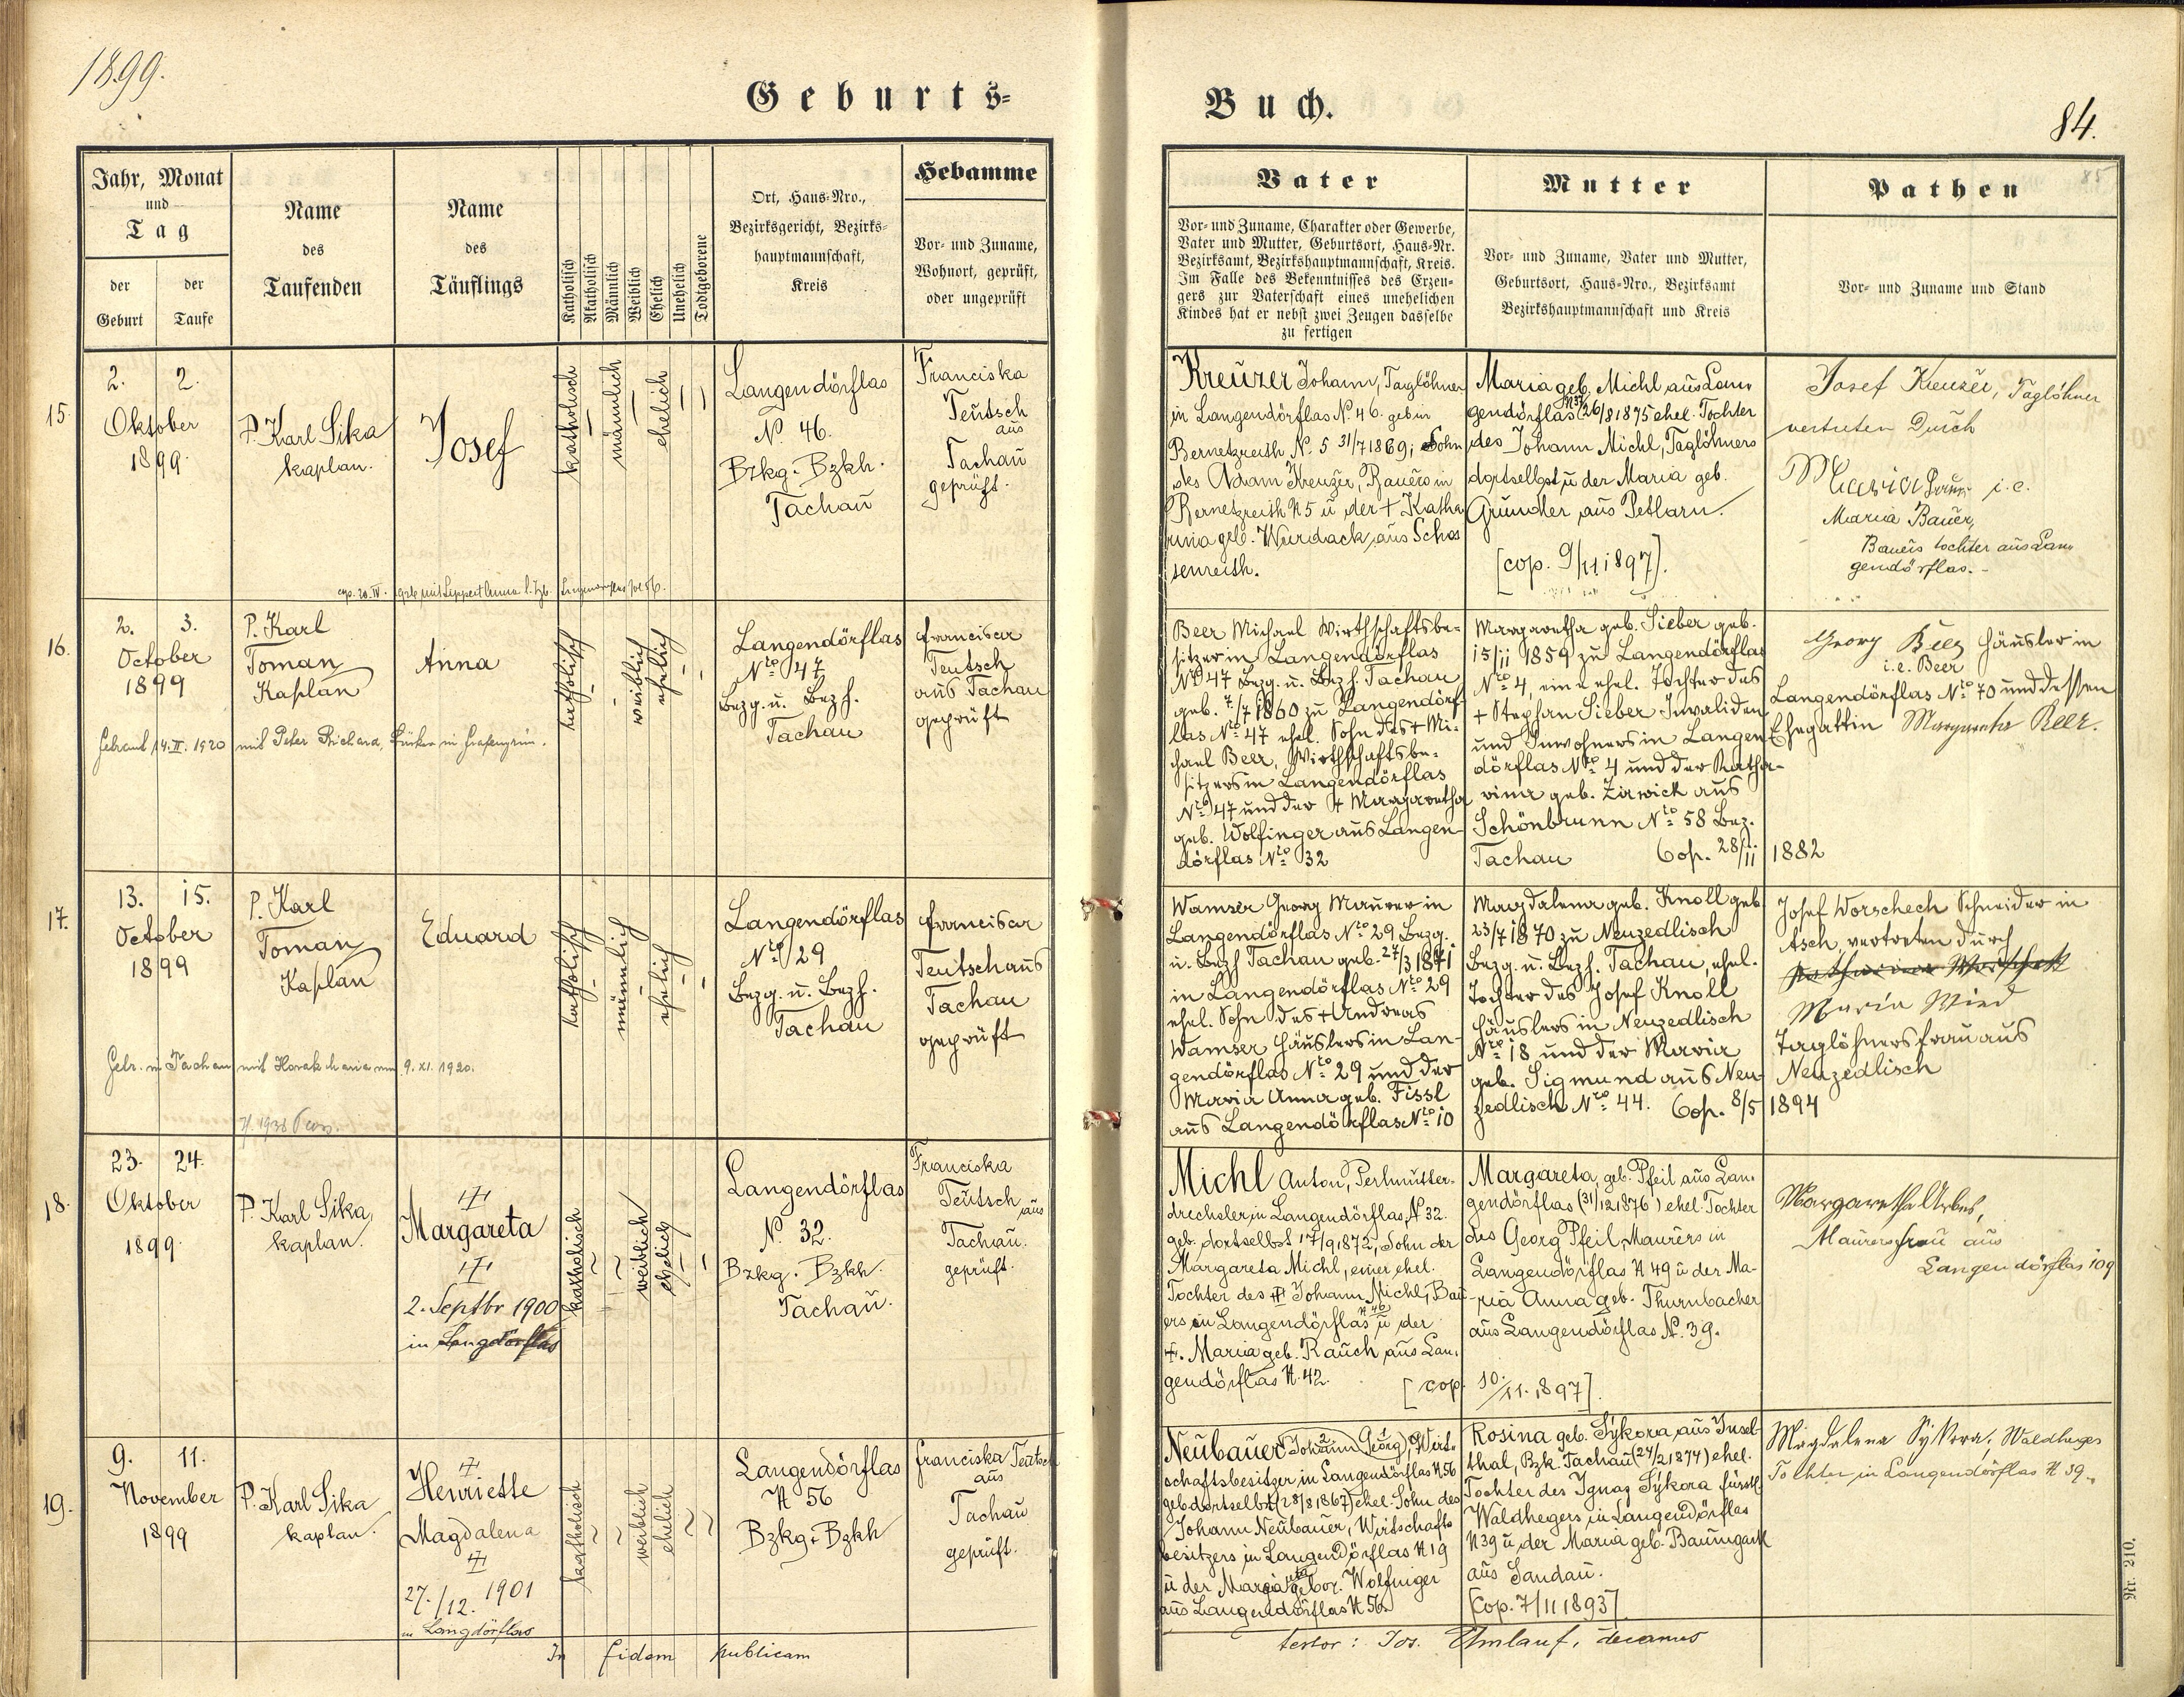 1899.
Geburts-
Buch.
84.
85
Jahr, Monat
und
Tag
der
Geburt
der
Taufe
Name
des
Taufenden
Name
des
Täuflings
Katholisch
Akatholisch
Männlich
Weiblich
Ehelich
Unehelich
Todtgeborene
Ort, Haus-Nro.,
Bezirksgericht, Bezirks-
hauptmannschaft,
Kreis
Hebamme
Vor- und Zuname,
Wohnort, geprüft,
oder ungeprüft
Vater
Vor- und Zuname, Charakter oder Gewerbe,
Vater und Mutter, Geburtsort, Haus-Nr.
Bezirksamt, Bezirkshauptmannschaft, Kreis.
Im Falle des Bekenntnisses des Erzeu-
gers zur Vaterschaft eines unehelichen
Kindes hat er nebst zwei Zeugen dasselbe
zu fertigen
Mutter
Vor- und Zuname, Vater und Mutter,
Geburtsort, Haus-Nro., Bezirksamt
Bezirkshauptmannschaft und Kreis
Pathen
Vor- und Zuname und Stand
15.
2. 2.
Oktober
1899.
P. Karl Sika
kaplan.
Josef
katholisch
männlich
ehelich
Langendörflas
N. 46.
Bzkg. Bzkh.
Tachau
Franciska
Teutsch
aus
Tachau
geprüft.
Kreuzer Johann, Taglöhner
in Langendörflas N. 46. geb in
Bernetzreith N. 5 31/7 1869; Sohn
des Adam Kreuzer, Bauers in
Bernetzreith N 5 u der + Katha
rina geb. Wurdack aus Schos
senreith.
Maria geb. Michl aus Lan-
gendörflas N 37 (26/8 1875 ehel. Tochter
des Johann Michl, Taglöhners
dortselbst u der Maria geb.
Gründler aus Petlarn.
[cop. 9/11 1897].
Josef Kreuzer, Taglöhner
vertreten durch
Maria i.e.
Maria Bauer,
Bauers tochter aus Lan-
gendörflas.
cop. 20. IV. mit Lippert Anna
16.
2. 3.
October
1899
P. Karl
Toman
Kaplan
Anna
katholisch
weiblich
ehelich
Langendörflas
Nro 47
Bezg. u. Bezh.
Tachau
Francisca
Teutsch
aus Tachau
geprüft
Beer Michael Wirthschaftsbe-
sitzer in Langendörflas
Nro 47 Bezg. u. Bezh. Tachau
geb. 7/7 1860 zu Langendörf-
las Nro 47 ehel. Sohn des + Mi-
chael Beer, Wirthschaftsbe-
sitzers in Langendörflas
Nro 47 und der + Margaretha
geb. Wolfinger aus Langen-
dörflas Nro 32
Margaretha geb. Sieber geb.
15/11 1859 zu Langendörflas
Nro 4, eine ehel. Tochter des
+ Stephan Sieber Invaliden
und Inwohners in Langen
dörflas Nro 4 und der Katha-
rina geb. Zirwick aus
Schönbrunn Nro 58 Bez.
Tachau Cop. 28/11 1882
Georg Beer Häusler in
i.e. Beer
Langendörflas Nro 70 und dessen
Ehegattin Margaretha Beer.
Getraut 14. II. 1920 mit Peter Richard, in Grafengrün.
17.
13. 15.
October
1899
P. Karl
Toman
Kaplan
Eduard
katholisch
männlich
ehelich
Langendörflas
Nro 29
Bezg. u. Bezh.
Tachau
Francisca
Teutsch aus
Tachau
geprüft
Wamser Georg Maurer in
Langendörflas Nro 29 Bezg.
u. Bezh Tachau geb. 27/3 1871
in Langendörflas Nro 29
ehel. Sohn des + Andreas
Wamser Häuslers in Lan-
gendörflas Nro 29 und der
Maria Anna geb. Fissl
aus Langendörflas Nro 10
Magdalena geb. Knoll geb
23/7 1870 zu Neuzedlisch
Bezg. u. Bezh. Tachau, ehel.
Tochter des Josef Knoll
Häuslers in Neuzedlisch
Nro 18 und der Maria
geb. Sigmund aus Neu-
zedlisch Nro 44. Cop. 8/5 1894
Josef Worschech Schneider in
Asch, vertreten durch
Maria Wied
Taglöhnersfrau aus
Neuzedlisch
Getr. in Tachau mit Horak Maria am 9. XI. 1920.
18.
23. 24.
Oktober
1899.
P. Karl Sika,
kaplan.
Margareta
2. Septbr 1900
in Langdörflas
katholisch
weiblich
ehelich
Langendörflas
N. 32.
Bzkg. Bzkh.
Tachau.
Franciska
Teutsch
aus
Tachau.
geprüft.
Michl Anton, Perlmutter-
drechsler in Langendörflas, N 32.
geb. dortselbst 17/9 1872, Sohn der
Margareta Michl, einer ehel.
Tochter des Johann Michl, Bau-
ers in Langendörflas N 46 u der
+. Maria geb. Rauch aus Lan-
gendörflas N. 42.
[cop. 10./11. 1897].
Margareta, geb. Pfeil aus Lan-
gendörflas (31/12 1876) ehel. Tochter
des Georg Pfeil, Maurers in
Langendörflas N 49 u der Ma-
ria Anna geb. Thurnbacher
aus Langendörflas N. 39.
Margaretha Urbes,
Maurersfrau aus
Langendörflas 109
19.
9. 11.
November
1899
P. Karl Sika
kaplan.
Henriette
Magdalena
27./12. 1901
in Langdörflas
katholisch
weiblich
ehelich
Langendörflas
N 56
Bzkg. Bzkh
Franciska Teutsch
aus
Tachau
geprüft.
Neubauer (Johann Georg), Wirt-
schaftsbesitzer in Langendörflas N 56
geb dortselbst (28/8 1867) ehel. Sohn des
Johann Neubauer, Wirtschafts
besitzers in Langendörflas N 19
u der Margareta gebor. Wolfinger
aus Langendörflas N 56.
Rosina geb. Sýkora aus Insel-
thal, Bzk. Tachau (27/2 1874) ehel.
Tochter des Ignaz Sýkora fürstl.
Waldhegers in Langendörflas
N 39 u der Maria geb. Baumgartl
aus Sandau.
[Cop. 7/11 1893]
Magdalena Sykora, Waldhegers
Tochter in Langendörflas N 39.
In fidem publicam
testor: Jos. Umlauf, decanus
Nr. 210.